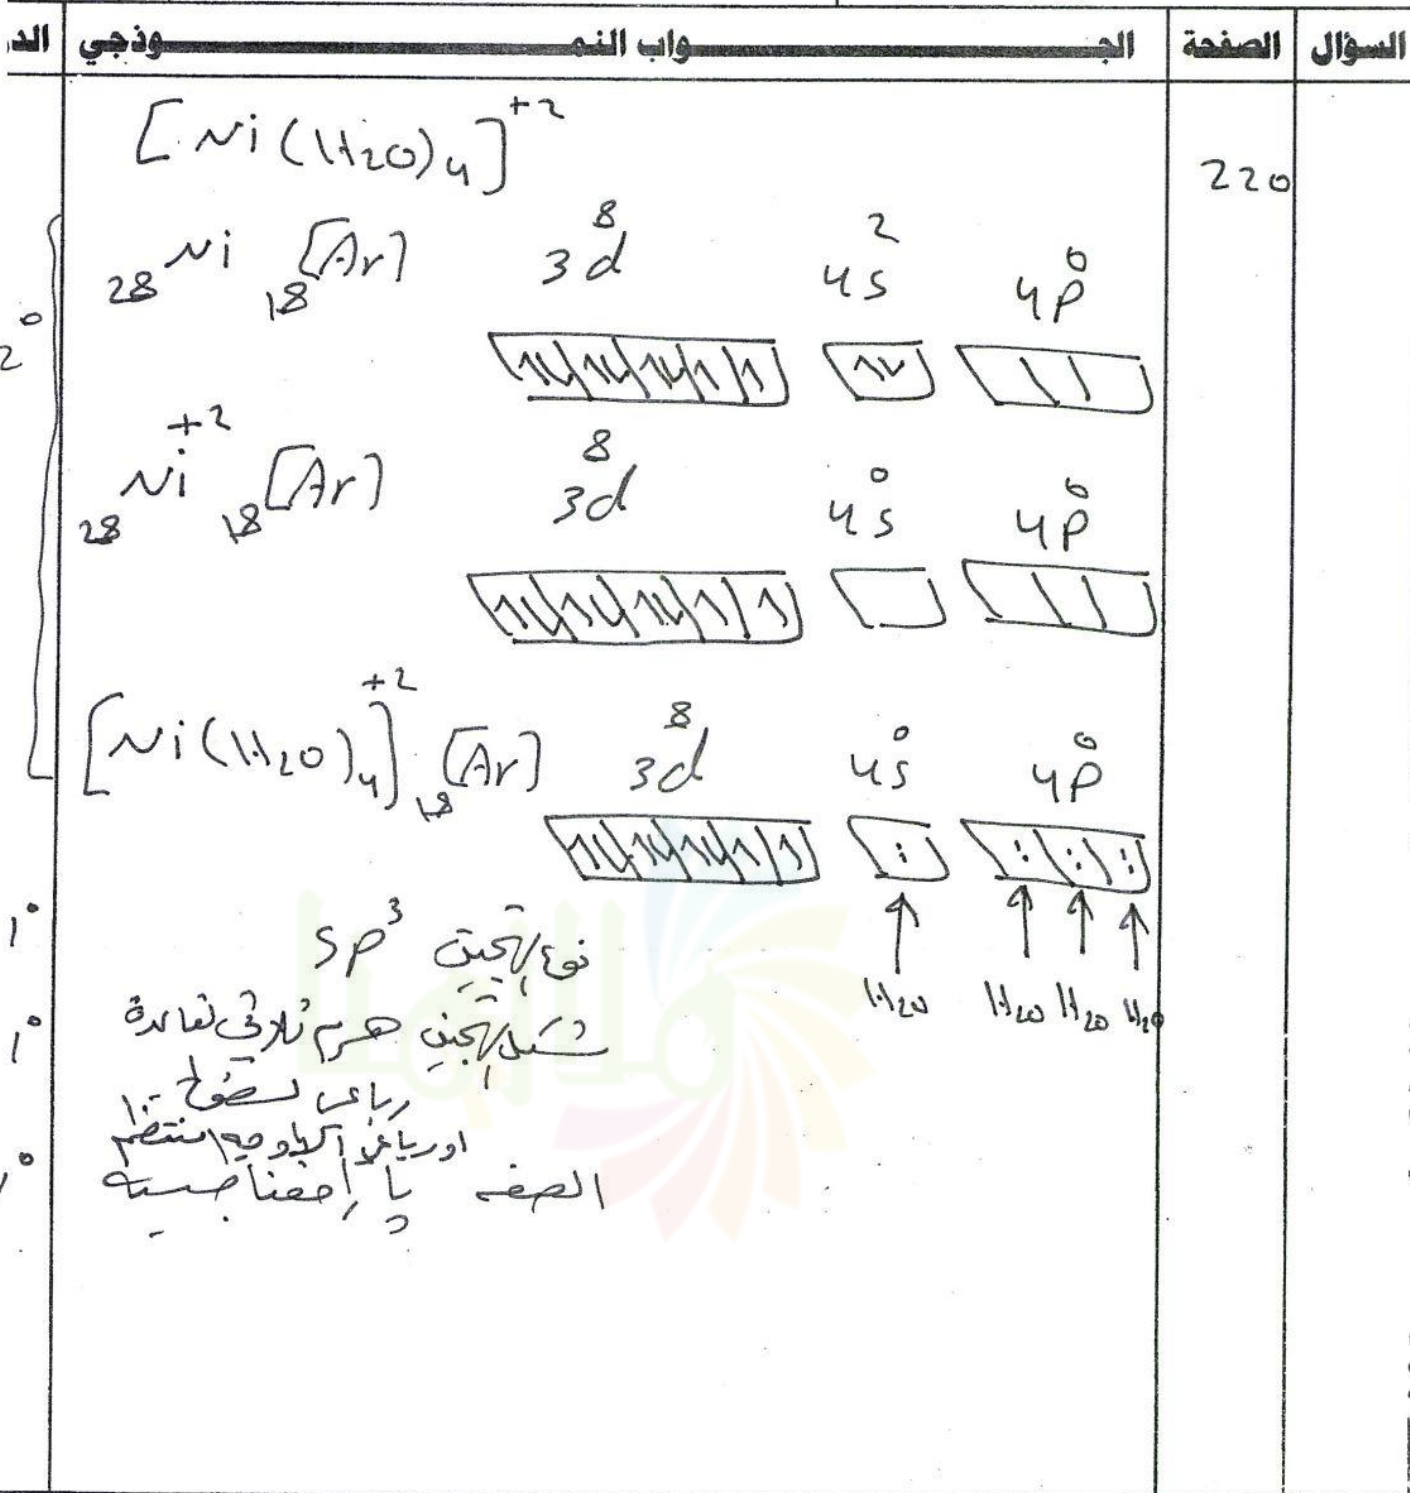 السؤال الصفحة الجـــواب النمـــوذجي الد
220
[Ni(H2O)4]+2
28Ni 18[Ar] 3d8 4s2 4p0
28Ni+2 18[Ar] 3d8 4s0 4p0
2°
[Ni(H2O)4]+2 18[Ar] 3d8 4s0 4p0
H2O H2O H2O H2O
1° نوع تهجين sp3
1° شكل تهجين هرم ثلاثي لقاعدة
رباعي لسطوح
او رباعي الاوجه المنتظم
1° الصفه بارامغناطيسيه